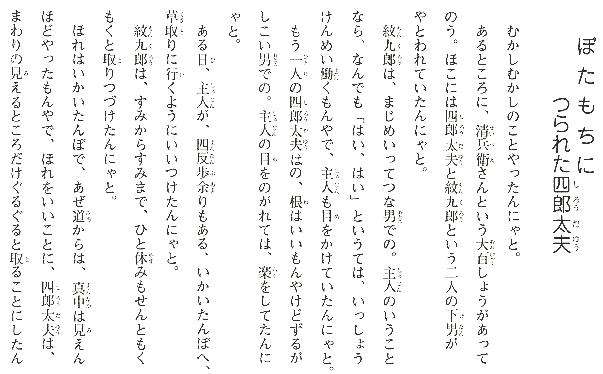 ぼたもちに
つられた四郎太夫
むかしむかしのことやったんにゃと。
あるところに、清兵衛さんという大百しょうがあって
のう。ほこには四郎太夫と紋九郎という二人の下男が
やとわれていたんにゃと。
紋九郎は、まじめいってつな男での。主人のいうこと
なら、なんでも「はい、はい」というては、いっしょう
けんめい働くもんやで、主人も目をかけていたんにゃと。
もう一人の四郎太夫はの、根はいいもんやけどずるが
しこい男での。主人の目をのがれては、楽をしてたんに
ゃと。
ある日、主人が、四反歩余りもある、いかいたんぼへ、
草取りに行くようにいいつけたんにゃと。
紋九郎は、すみからすみまで、ひと休みもせんともく
もくと取りつづけたんにゃと。
ほれはいかいたんぼで、あぜ道からは、真中は見えん
ほどやったもんやで、ほれをいいことに、四郎太夫は、
まわりの見えるところだけぐるぐると取ることにしたん